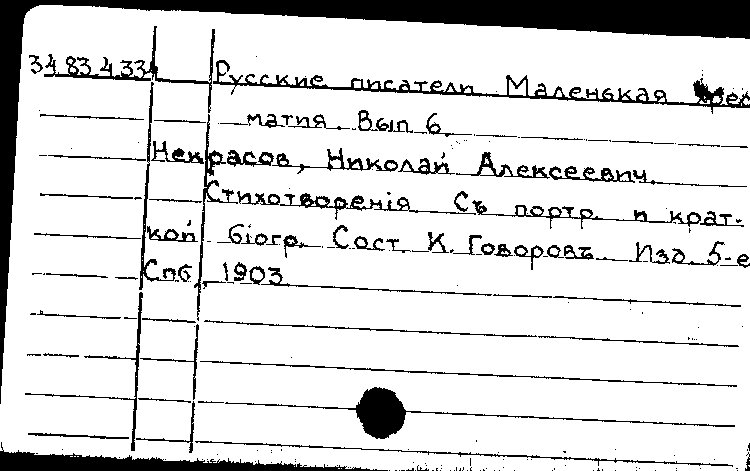 34.83.4.33 Русские писатели Маленькая хрес
матия. Вып 6.
Некрасов, Николай Алексеевич.
Стихотворенія Съ портр. и крат-
кой біогр. Сост. К. Говоровъ. Изд. 5-е
Спб., 1903